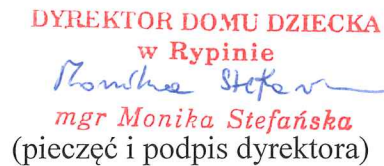 DYREKTOR DOMU DZIECKA
w Rypinie
Monika Stefan
mgr Monika Stefańska
(pieczęć i podpis dyrektora)